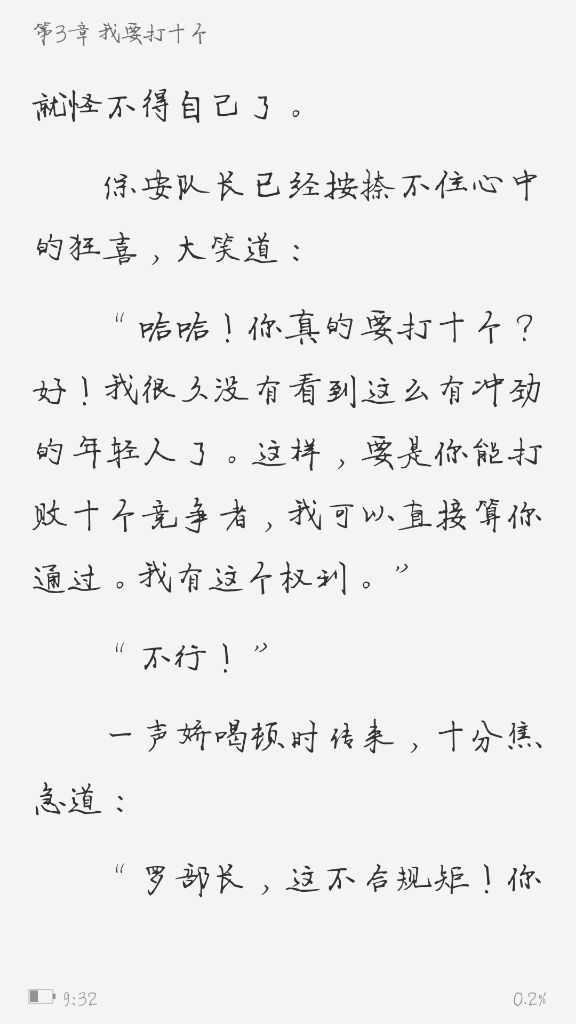 第3章 我要打十个
就怪不得自己了。
保安队长已经按捺不住心中
的狂喜，大笑道：
“哈哈！你真的要打十个？
好！我很久没有看到这么有冲劲
的年轻人了。这样，要是你能打
败十个竞争者，我可以直接算你
通过。我有这个权利。”
“不行！”
一声娇喝顿时传来，十分焦
急道：
“罗部长，这不合规矩！你
9:32
0.2%